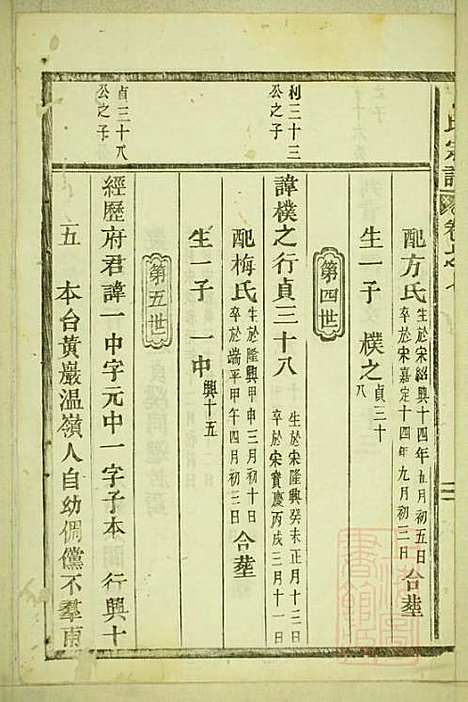 氏宗譜 卷之七
配方氏 生於宋紹興十四年九月初五日 卒於宋嘉定十四年九月初三日 合塟
生一子 樸之 貞三十八
第四世
利三十三公之子
諱樸之行貞三十八 生於宋隆興癸未正月十三日 卒於宋寶慶丙戌三月十一日
配梅氏 生於隆興甲申三月初十日 卒於端平甲午四月初三日 合塟
生一子 一中 興十五
第五世
貞三十八公之子
經歷府君諱一中字元中一字子本 行興十
五 本台黃巖温嶺人自幼倜儻不羣南